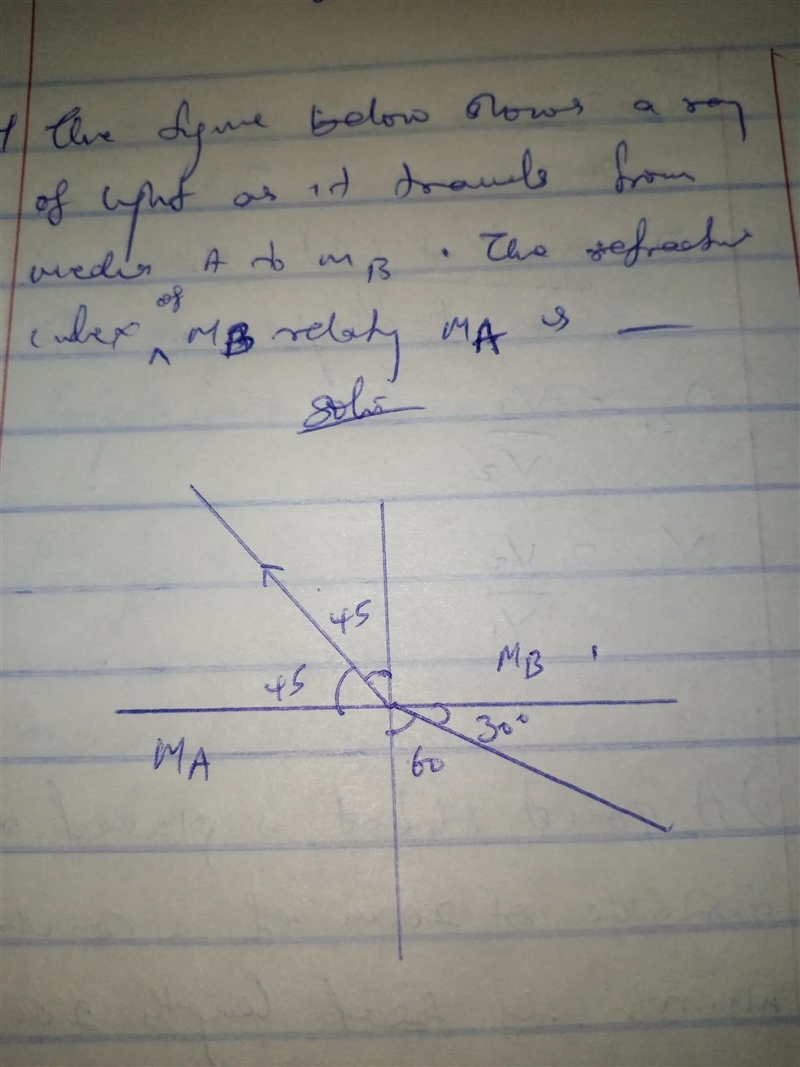 The figure below shows a ray
of light as it travels from
media A to MB. The refractive
index of MB relatng MA is —
Soln
45
45
MB
MA
60
30°